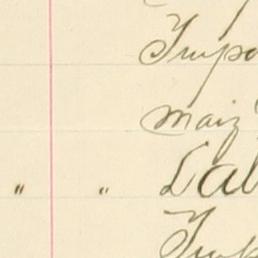 Impo
maiz
" " Lab
Imp